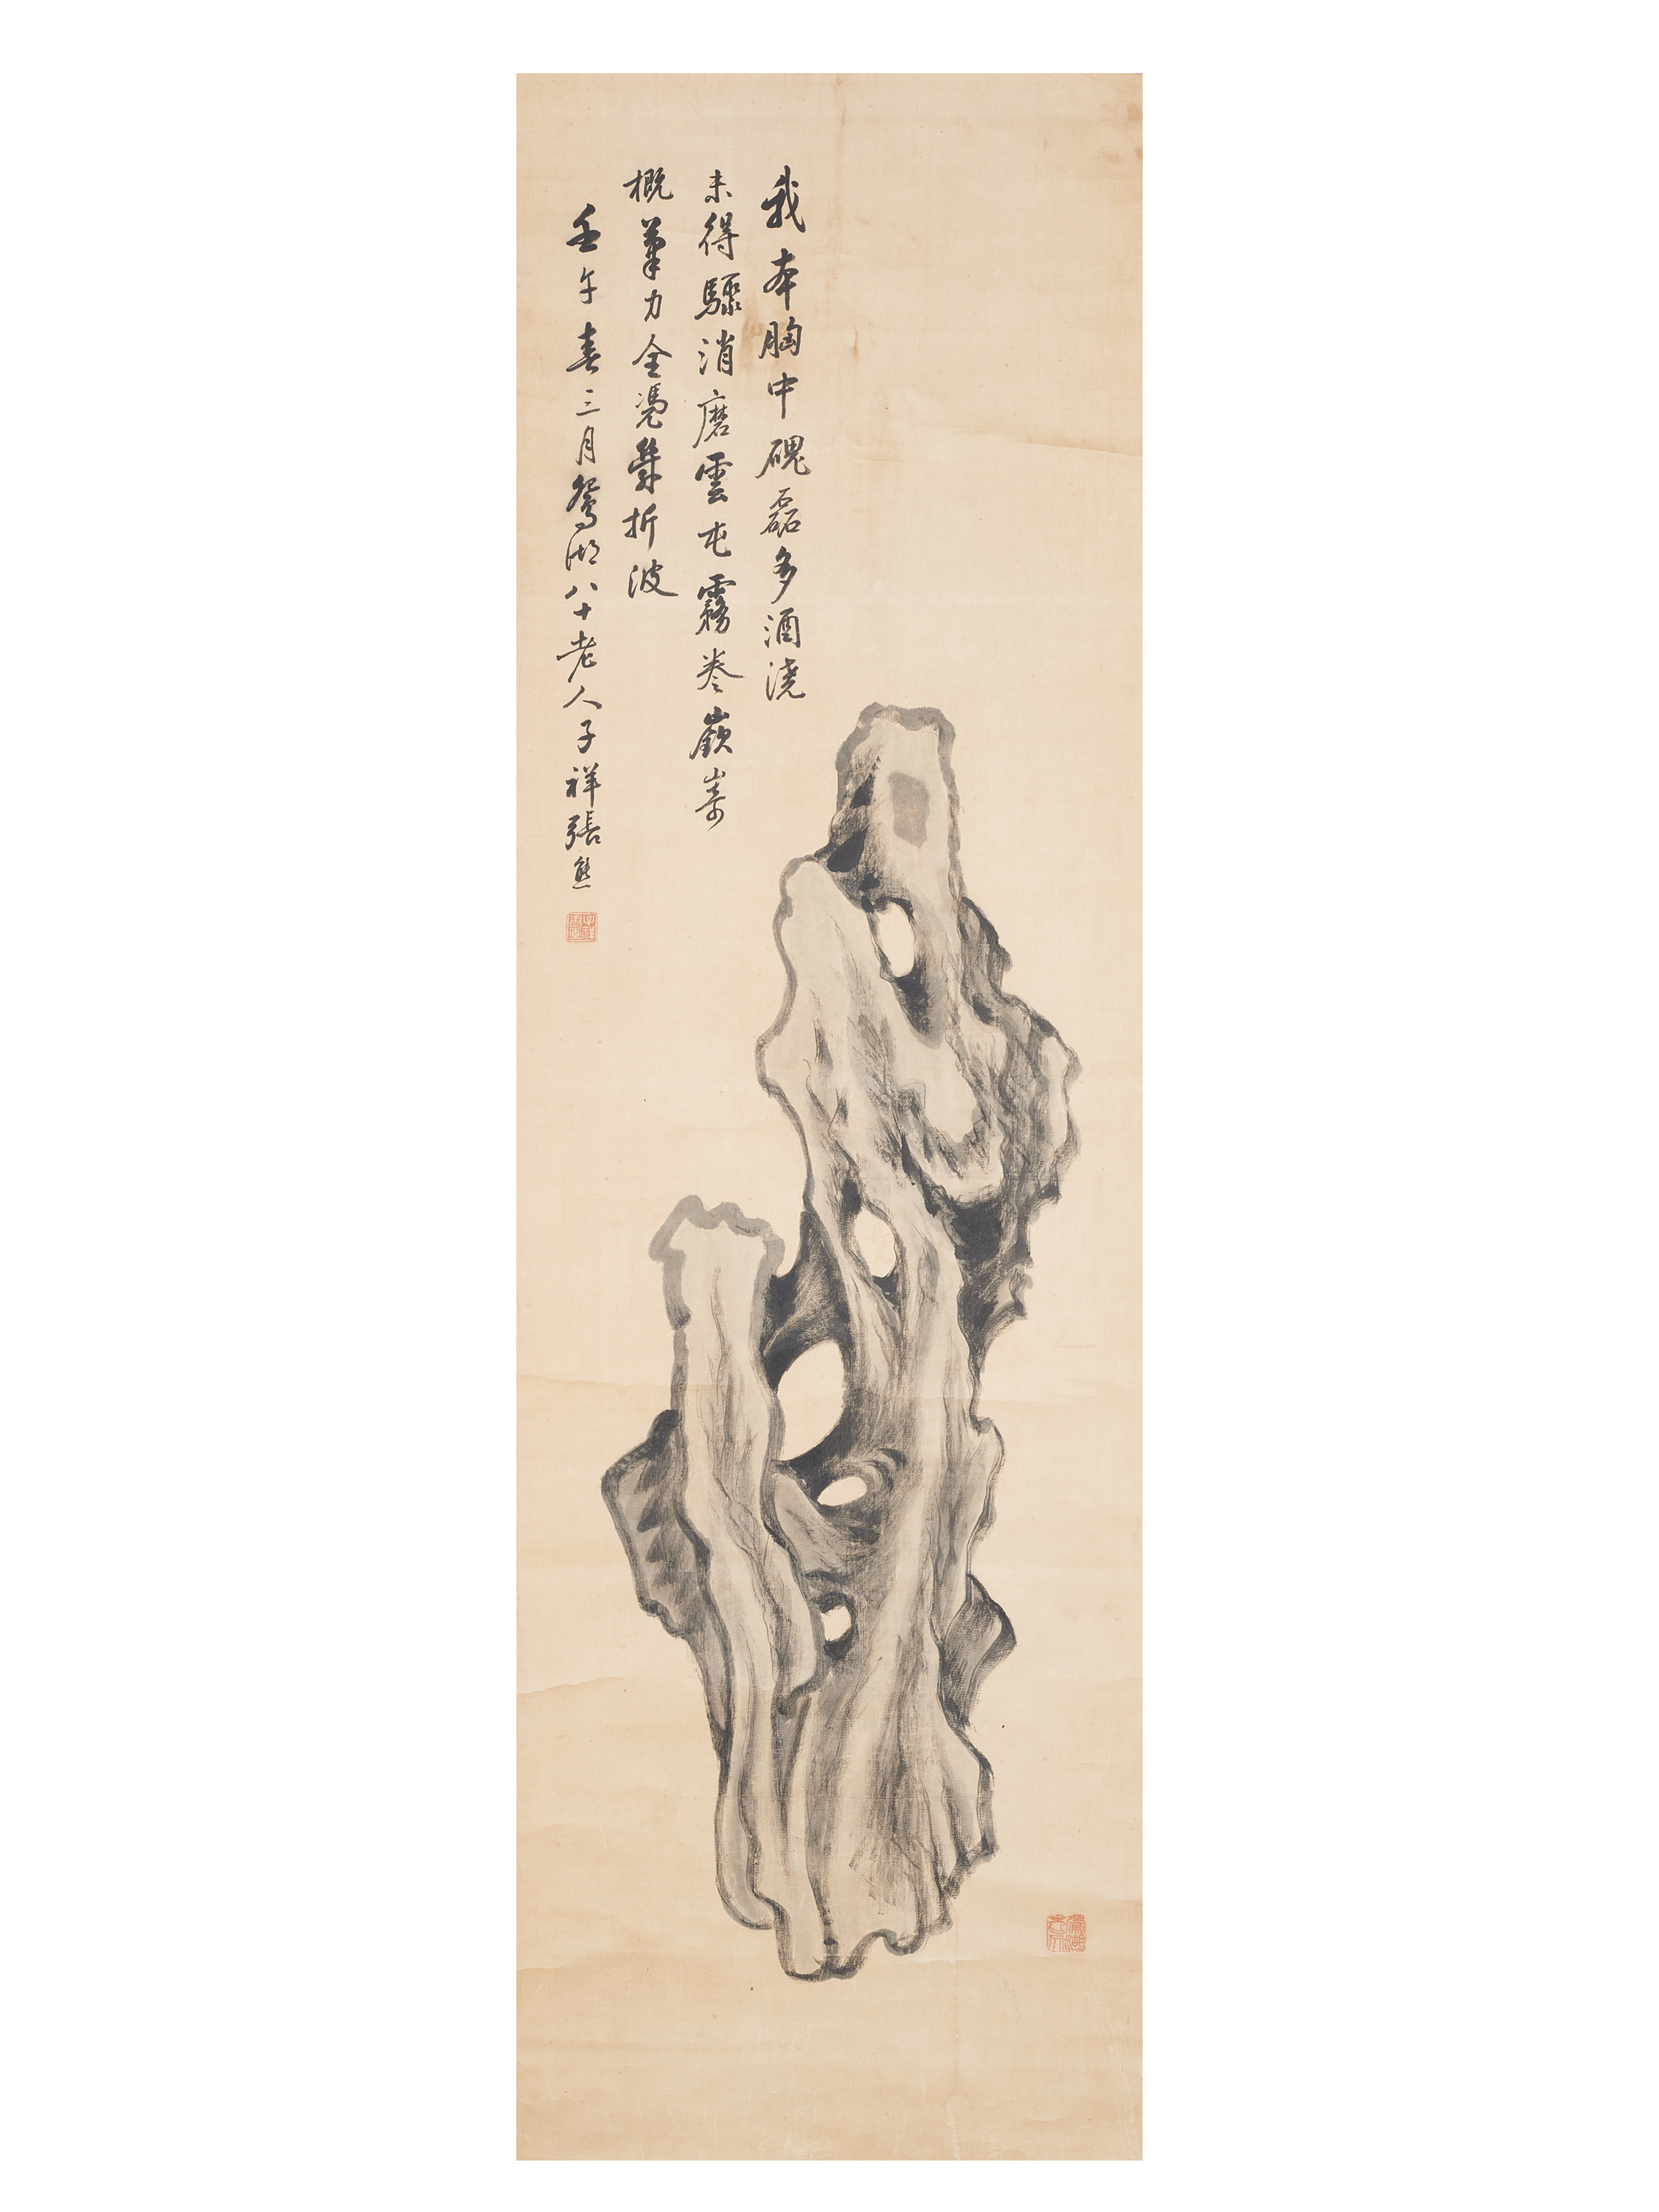 我本胸中磈磊多酒澆
未得驟消磨雲屯霧卷嶔嵜
概筆力全憑折波
壬午春三月鴛湖八十老人子祥張熊
鴛湖老人